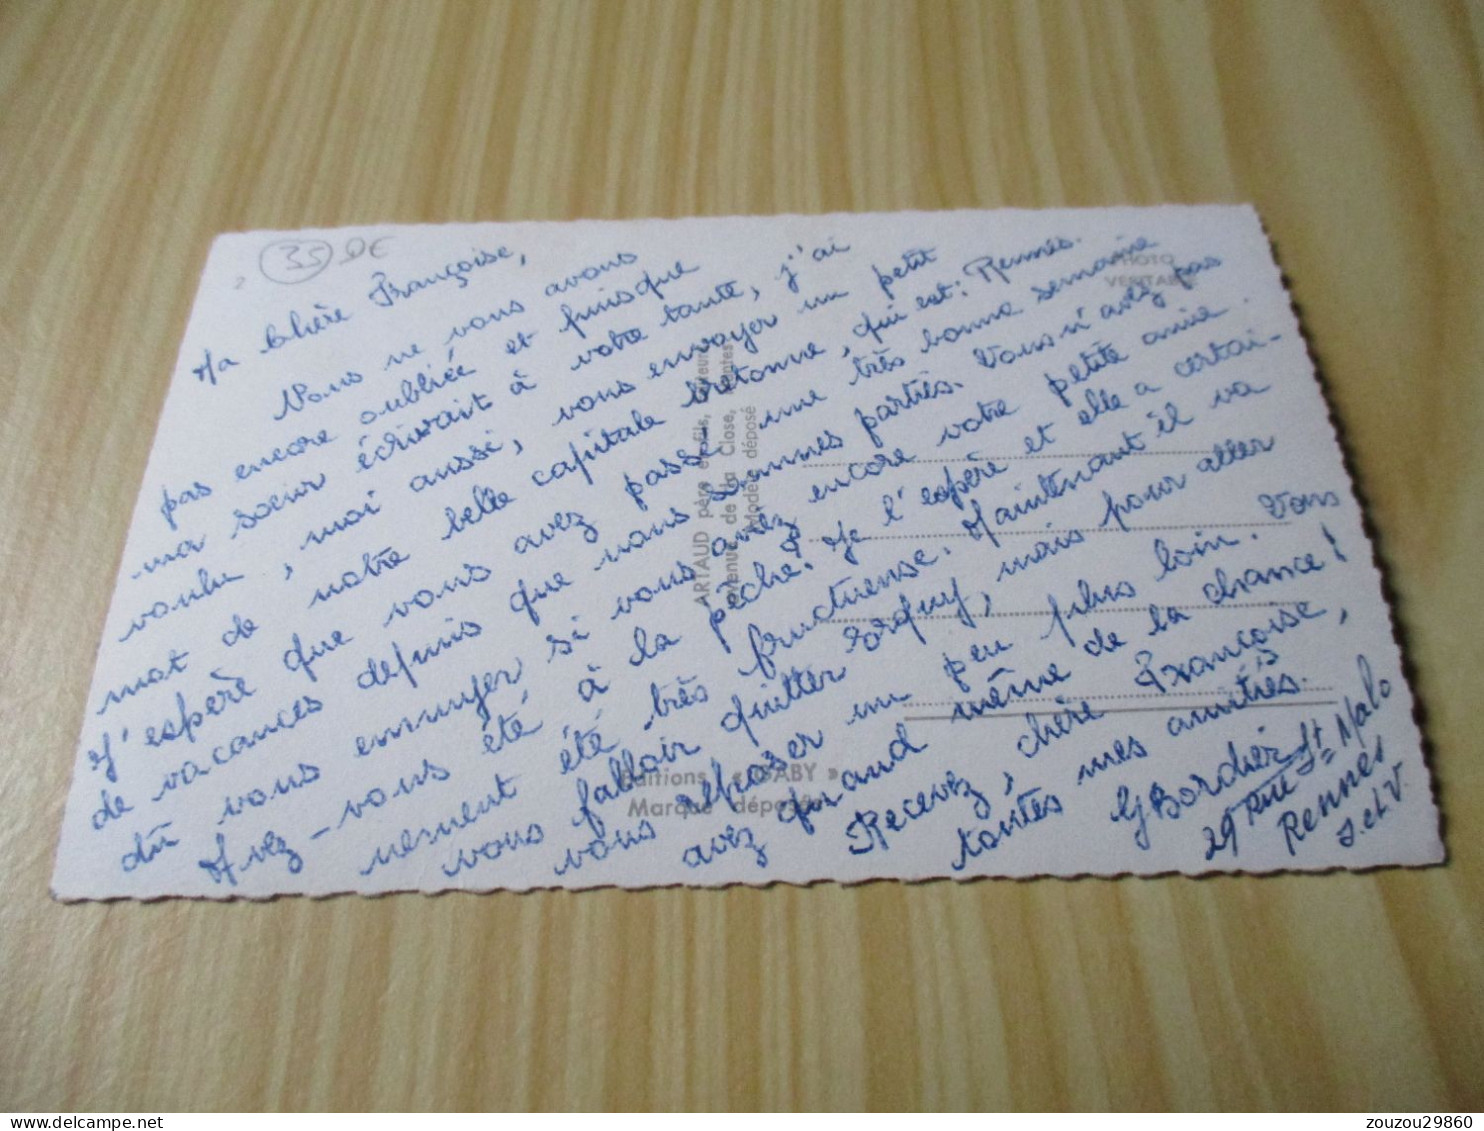 35 DE
2
Ma Chère Françoise,
Nous ne vous avons
pas encore oubliée et puisque
ma soeur écrivait à votre tante, j'ai
voulu, moi aussi, vous envoyer un petit
mot de notre belle capitale bretonne, qui est: Rennes.
J'espère que vous avez passé une très bonne semaine
de vacances depuis que nous sommes partis. Vous n'avez pas
dû vous ennuyer si vous avez encore votre petite amie.
Avez-vous été à la pêche? Je l'espère et elle a certai-
nement été très fructueuse. Maintenant il va
vous falloir quitter Erquy, mais pour aller
vous reposer un peu plus loin. Vous
avez quand même de la chance!
Recevez, chère Françoise,
toutes mes amitiés.
G Bordier
29 Rue St Malo
Rennes
I. et V.
PHOTO
VERITABLE
ARTAUD père et fils, éditeurs
avenue de la Close, Nantes
Modèle déposé
Editions « GABY »
Marque déposée
zouzou29860